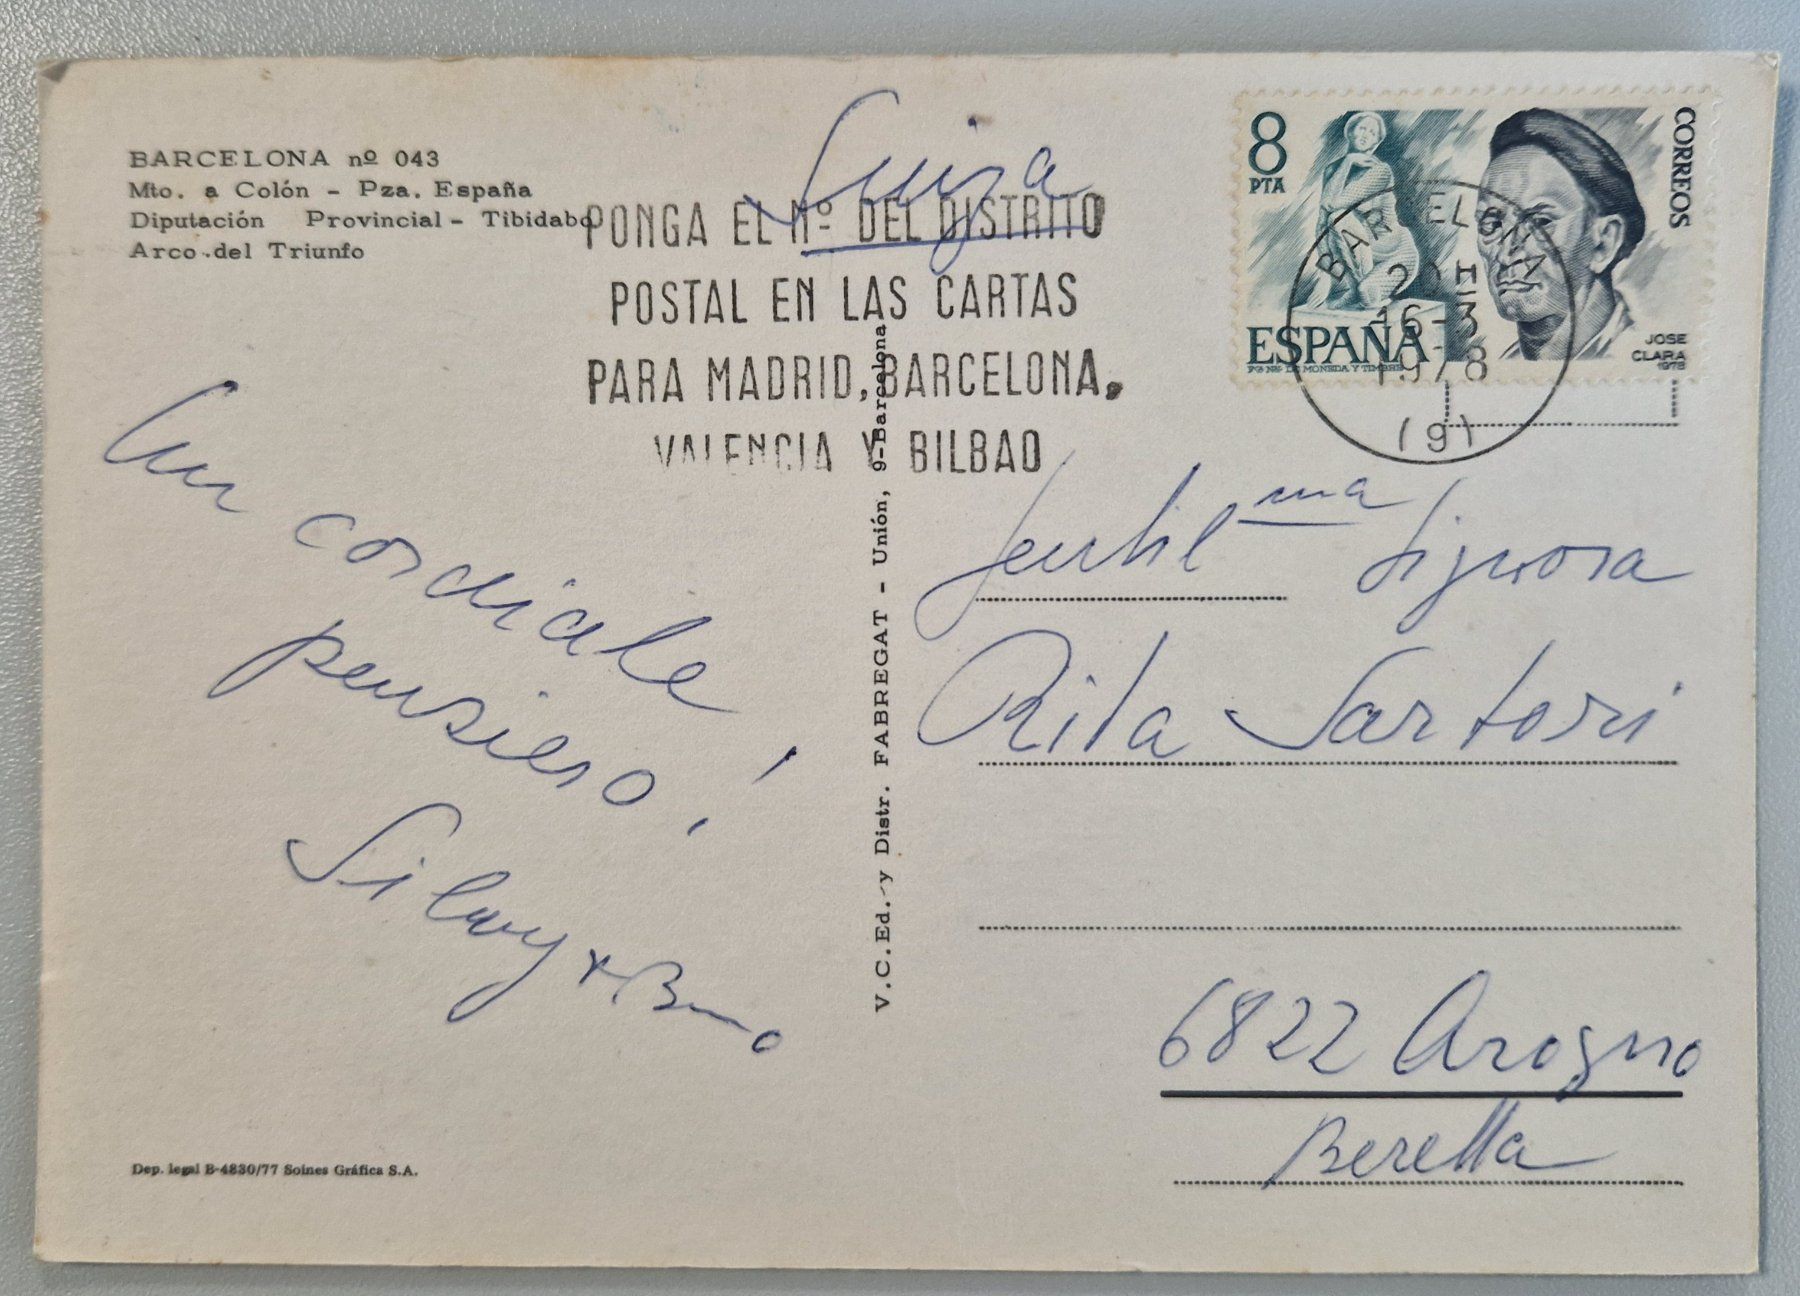 BARCELONA nº 043
Mto. a Colón - Pza. España
Diputación Provincial - Tibidabo
Arco del Triunfo
PONGA EL Nº DEL DISTRITO
POSTAL EN LAS CARTAS
PARA MADRID, BARCELONA,
VALENCIA Y BILBAO
8
PTA
CORREOS
ESPAÑA
JOSE
CLARA
1978
BARCELONA
20H
16-3
1978
(9)
Un cordiale
pensiero!
Silvy + Bruno
Dep. legal B-4830/77 Soines Gráfica S.A.
V.C.Ed. y Distr. FABREGAT - Unión, 9-Barcelona
Gentil ma Signora
Rita Sartori
6822 Arogno